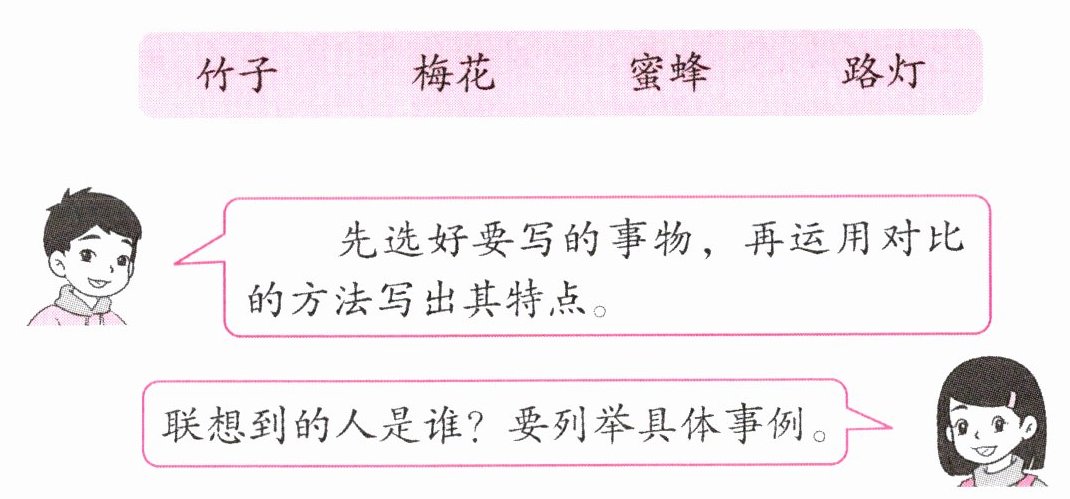 竹子 梅花 蜜蜂 路灯
先选好要写的事物，再运用对比
的方法写出其特点。
联想到的人是谁？要列举具体事例。